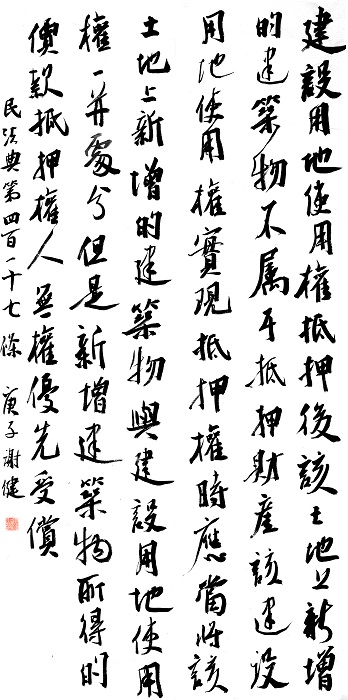 建設用地使用權抵押後該土地上新增
的建築物不属于抵押財産該建设
用地使用權實現抵押權時應當将該
土地上新增的建築物與建設用地使用
權一并處分但是新增建築物所得的
價款抵押權人無權優先受償
民法典第四百一十七條 庚子謝健